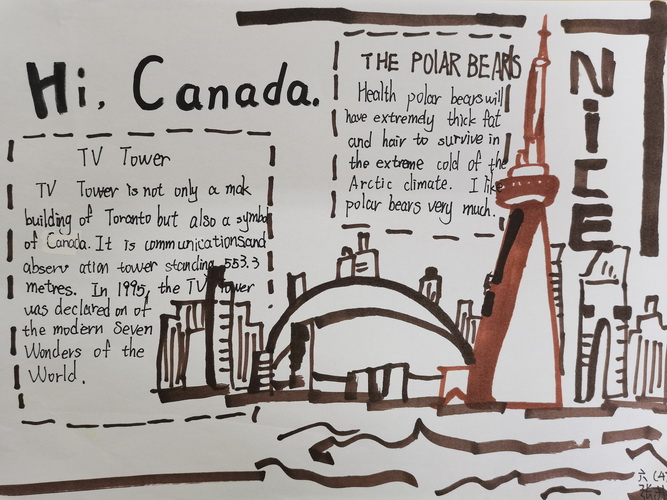 Hi, Canada.
THE POLAR BEARS
Health polar bears will
have extremely thick fat
and hair to survive in
the extreme cold of the
Arctic climate. I like
polar bears very much.
NiCE
TV Tower
TV Tower is not only a mak
building of Toranto but also a symbol
of Canada. It is communicationsand
observ ation tower standing 553.3
metres. In 1995, the TV Tower
was declared on of
the modern Seven
Wonders of the
World.